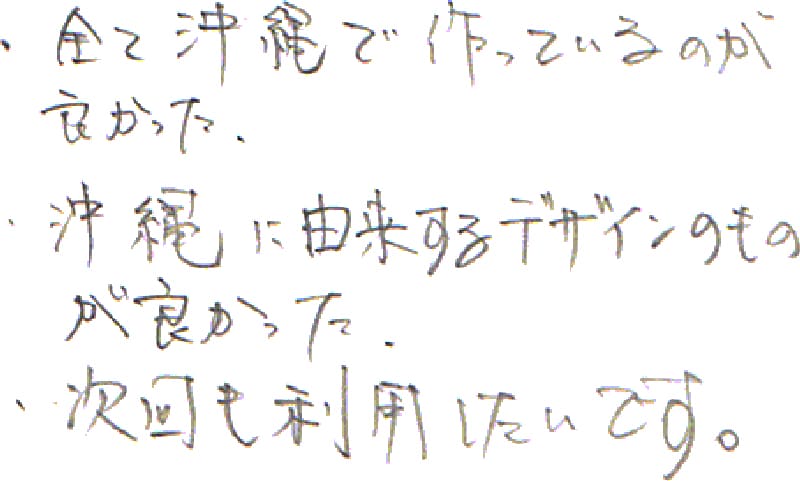 ・全て沖縄で作っているのが
良かった.
・沖縄に由来するデザインのもの
が良かった.
・次回も利用したいです。